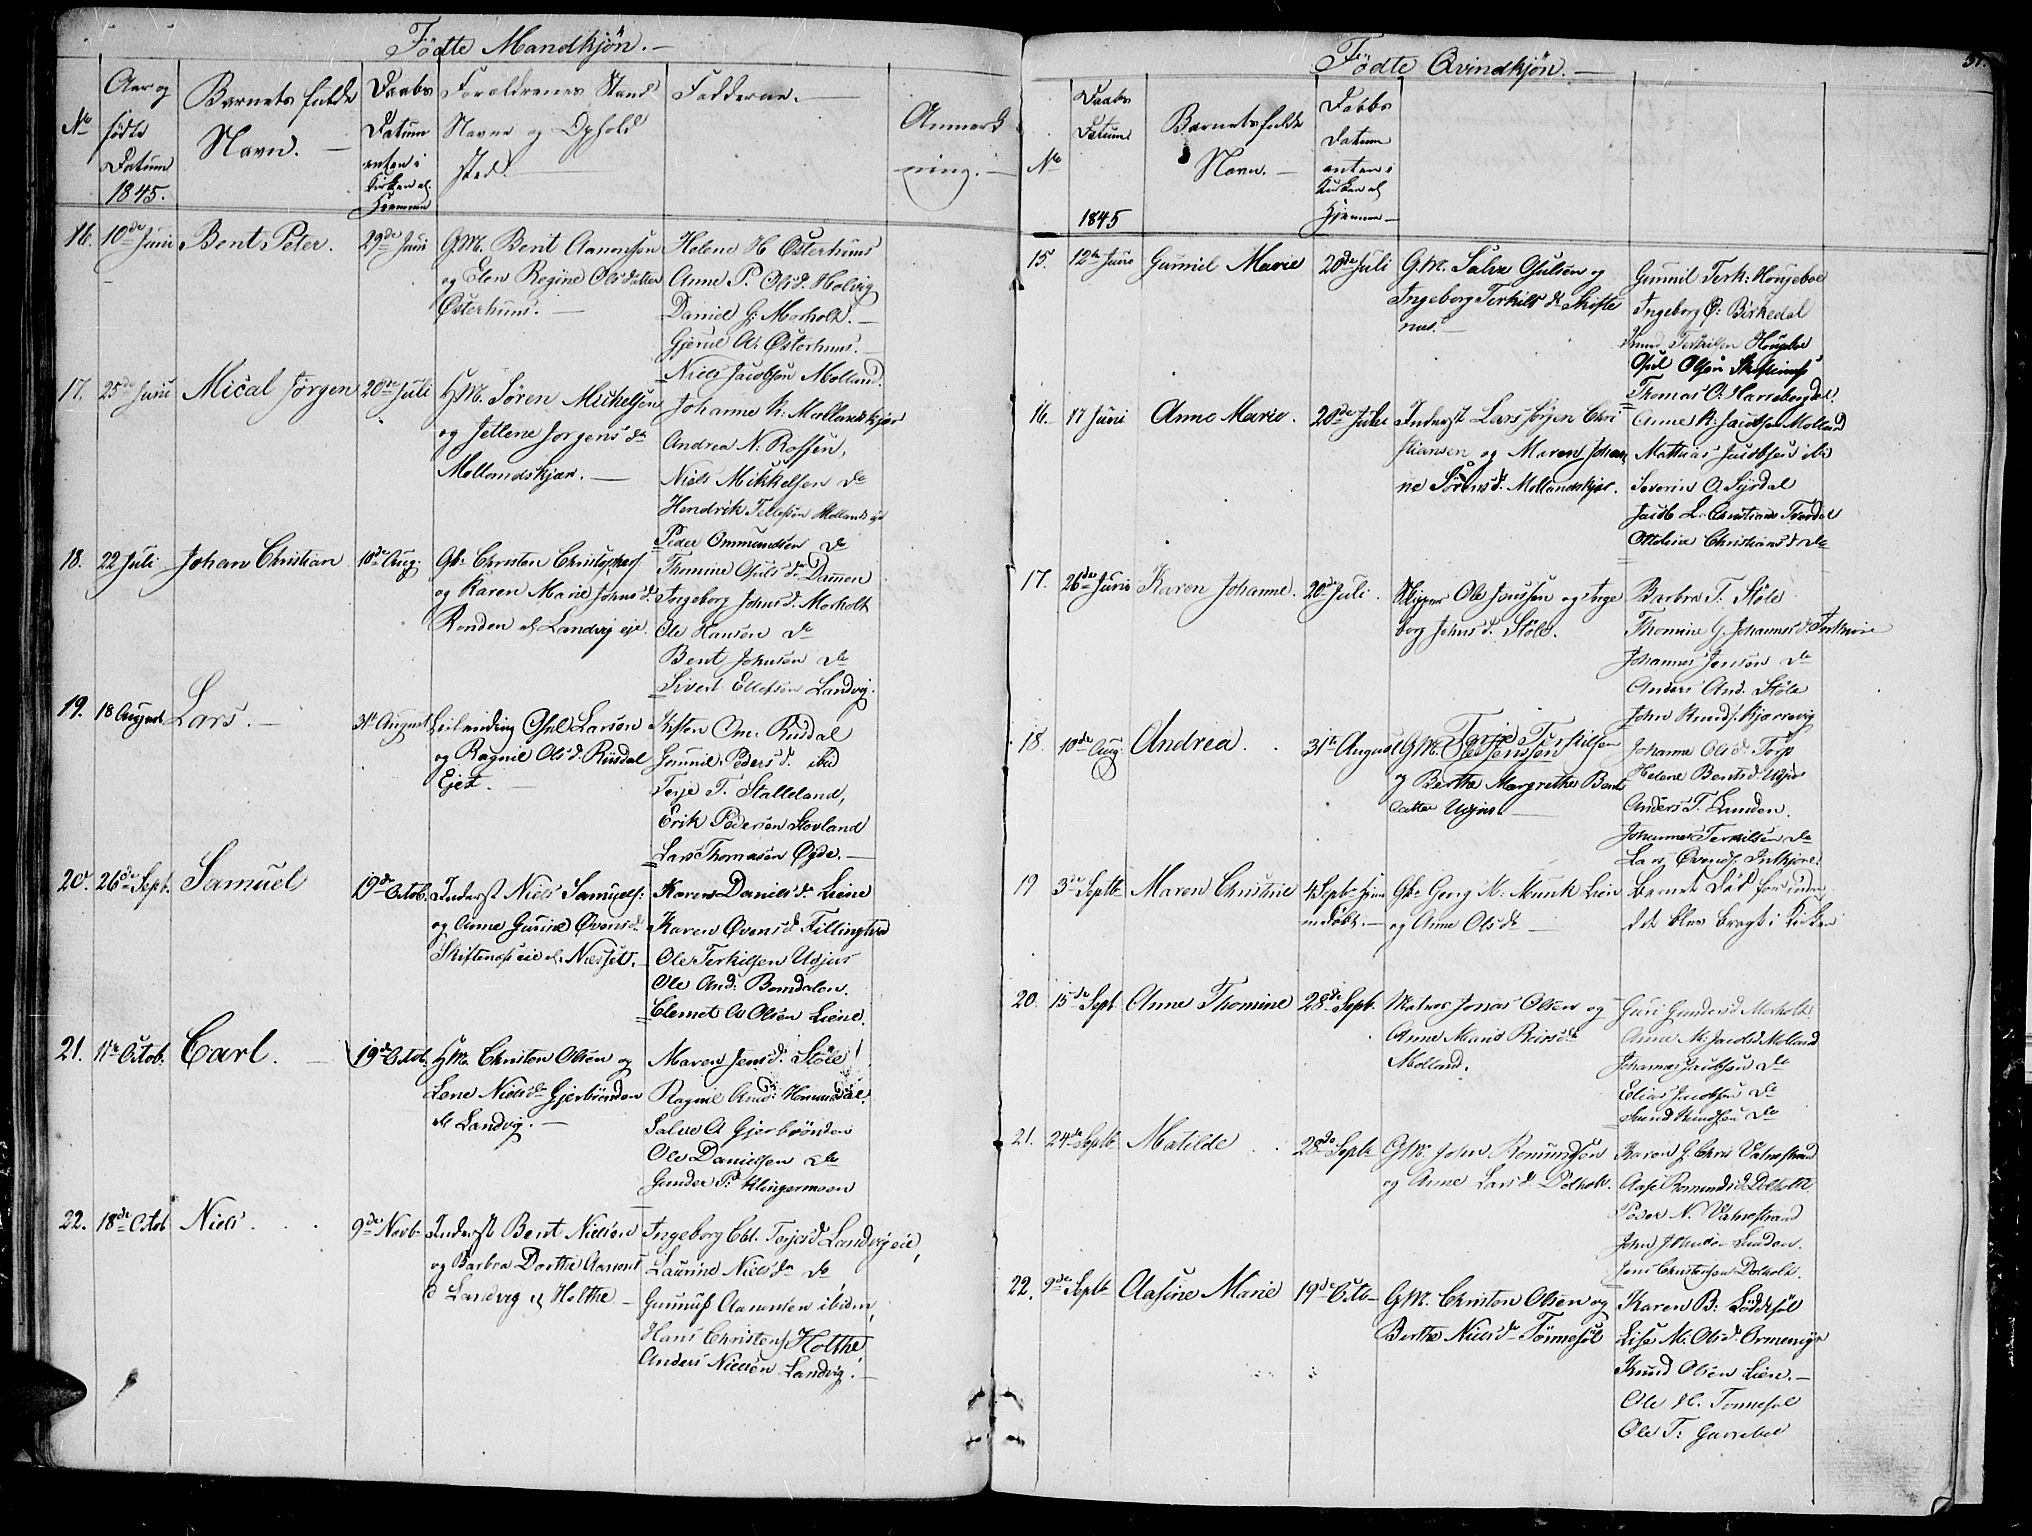 Fødte Mandkjön.
No
Aar og
fødte
Datum
1845.
Barnets fulde
Navn.
Daabs
Datum
enten i
Kirken el.
Hjemme
Forældrenes Stand
Navne og Ophold
sted.
Fadderne.
Anmærk
ning.
16. 10de Juni Bent Peter. 29de Juni
G.M. Bent Aanonsen
og Elen Regine Olsdatter
Østerhuus.
Helene H Østerhuus
Anne P. Olsd. Holvig
Daniel G: Morholt.
Gjerul A: Østerhuus.
Niels Jacobsön Molland.
17. 25de Juni Mical Jörgen 20de Juli
H.M. Sören Mickelsen
og Jellene Jorgensda
Mollandskjær.
Johanne K. Mollandskjær
Andrea N: Rossen,
Niels Mikkelsen do
Hendrik Tellefsen Mollands eje
Peder Ommundsen do
18. 22 Juli Johan Christian 10de Aug.
Gb: Christen Christophers
og Karen Marie Johnsd.
Renden el Landvig eje.
Thomine Osuls d. Dammen
Ingeborg Johnsd. Morholt
Ole Hansen do
Bent Johnsen do
Sivert Ellefsen Landvig.
19. 18 August Lars. 31t August
Leilending Osul Larsen
og Ragnil Olsd. Riisdal
Ejet.
Kisten Om. Riisdal
Gunnil Pedersd. ibid
Terje T. Stalleland,
Erik Pedersen Stovland
Lars Thomasen Øgde.
20. 26de Sept. Samuel 19de Octob.
Inderst Niels Samuels:
og Anne Gurine Øvensd.
Skiftenes eie el. Næsset.
Karen Daniels d. Liene
Karen Øvensd. Fillingtved
Ole Terkilsen Ugjus
Ole And: Bomdalen.
Clemet A Olsen Liene.
21. 11te Octob. Carl. 19de Octob.
H.M. Christen Olsen og
Lene Nielsda Gjerbrönden
el Landvig.
Maren Jensd. Stöle
Ragnil Amd: Hommedal.
Salve A Gjerbrönden
Ole Danielsen do
Gunder P: Klingermoen
22. 18de Octob Niels. 9de Novb.
Inderst Bent Nielsen
og Barbra Dorthe Aanonts
d Landvig el Holthe
Ingeborg Cbl. Terjesd. Landvig eie,
Laurine Nielsda do
Gunnuf Aanonsen ibidem,
Hans Christens. Holthe
Anders Nielsen Landvig.
Fødte Qvindkjön. 37.
No
Daabs
Datum
1845
Barnets fulde
Navn.
Dabbs
Datum
enten i
Kirken el
Hjemme
15. 12te Juni Gunnild Marie 20de Juli
G.M. Salve Osulsen og
Ingeborg Terkilsd. Skifte
nes.
Gunnil Terk: Hougeboe
Ingeborg O: Birkedal
Knud Terkilsen Hougeboe
Osul Olsen Skiftenes
Thomas O: Harrebergdal
16. 17 Juni Anne Marie. 20de Juli
Inderst Lars Jörgen Chri
stiansen og Maren Johan
ne Sörensd. Mollandskjær.
Anne K: Jacobsen Molland
Mathias Jacobsen ibid
Severin O. Syrdal
Jacob L. Christians Tverdal
Ottoline Christiansd do
17. 26de Juni Karen Johanne. 20de Juli.
Skipper Ole Jenssen og Inge
borg Johnsd. Stöle.
Barbra T. Stöle
Thomine G. Johannesd. Inkjöre
Johannes Jensen do
Anders And. Stöle
John Knuds. Kjærrevig
18. 10de Aug. Andrea. 31te August
G.M. Terje Terkilsen
og Berthe Margrethe Bents
datter Ugjus
Johanne Olsd. Torp
Helene Bentsd. Ugjus
Anders T. Lunden.
Johannes Terkilsen do
Lars Øvends. Inkjöre.
19. 3die Septb Maren Christine 4 Septb hjem
medöbt.
Gb: Georg N: Munk Lien
og Anne Olsd.
Barnet död forinden
det blev bragt i Kirken
20. 15de Sept Anne Thomine 28de Sept.
Matros Jonas Olsen og
Anne Marie Reiersd.
Molland.
Guri Gundersd Morholt
Anne M: Jacobsd Molland
Johannes Jacobsen do
Elias Jacobsen do
Svend Knudsen do
21. 24de Septb Matilde 28de Septb
G.M. John Romundsen
og Anne Larsd. Dolholt.
Karen G: Chris Valnestrand
Aase Romundsd. Dolholt
Peder N. Valnestrand
John Johnsen Lunden.
Jens Christensen Dolholt.
22. 9de Septb Aasine Marie 19de Octb
G.M. Christen Olsen og
Berthe Nielsda Tönnesöl
Karen B: Löddesöl
Lise M. Olsd. Ormenigr
Knud Olsen Lien.
Ole H. Tonnesöl
Ole T: